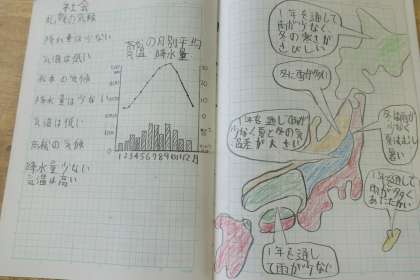 社会
札幌の気候
降水量は少ない
気温は低い
松本の気候
降水量は少ない
気温は低い
高松の気候
降水量少ない
気温は高い
高松の月別平均
気温 降水量
1 2 3 4 5 6 7 8 9 10 11 12 月
1年を通して
雨が少なく
冬の寒さが
きびしい
冬に雨が多い
1年を通して雨が
少なく夏と冬の気
温差が大きい
冬は雨が
少なく
夏はむし
暑い
1年を通し
て雨が多く
あたたかい
1年を通し
て雨が少なく